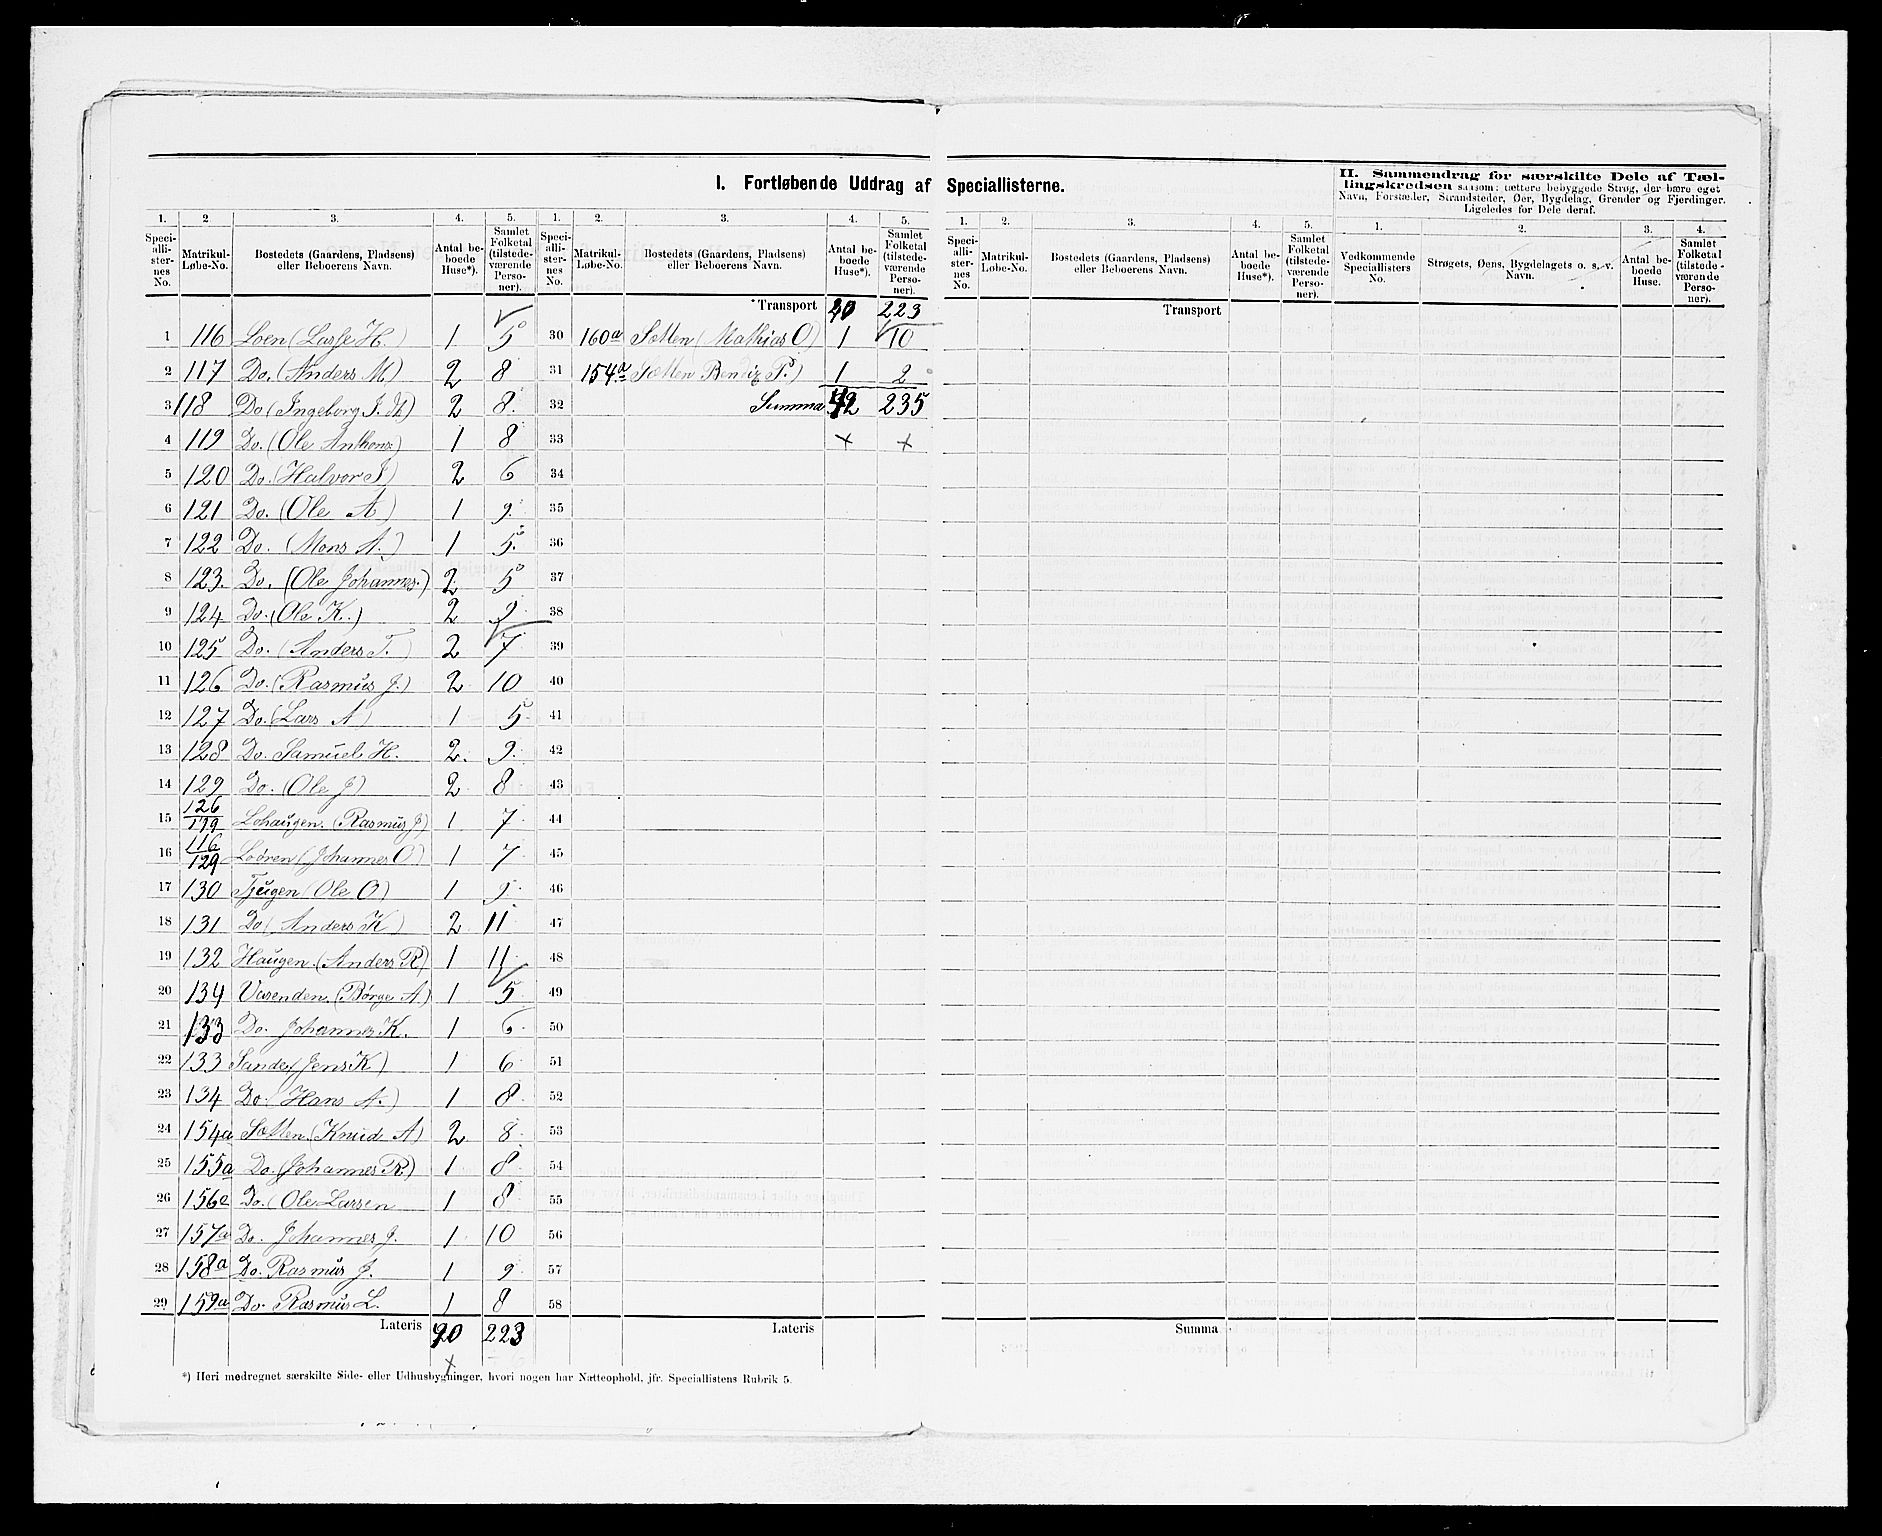 I. Fortløbende Uddrag af Speciallisterne.
II. Sammendrag for særskilte Dele af Tællingskredsen saasom: tættere bebyggede Strøg, der bære eget Navn, Forstæder, Strandsteder, Øer, Bygdelag, Grender og Fjerdinger. Ligeledes for Dele deraf.
1. 2. 3. 4. 5. 1. 2. 3. 4. 5. 1. 2. 3. 4. 5. 1. 2. 3. 4.
Speciallisternes No. Matrikul-Løbe-No. Bostedets (Gaardens, Pladsens) eller Beboerens Navn. Antal beboede Huse*). Samlet Folketal (tilstedeværende Personer).
Speciallisternes No. Matrikul-Løbe-No. Bostedets (Gaardens, Pladsens) eller Beboerens Navn. Antal beboede Huse*). Samlet Folketal (tilstedeværende Personer).
Speciallisternes No. Matrikul-Løbe-No. Bostedets (Gaardens, Pladsens) eller Beboerens Navn. Antal beboede Huse*). Samlet Folketal (tilstedeværende Personer).
Vedkommende Speciallisters No. Strøgets, Øens, Bygdelagets o. s. v. Navn. Antal beboede Huse. Samlet Folketal (tilstedeværende Personer).
1 116 Loen (Lasse H.) 1 5
2 117 Do. (Anders M) 2 8
3 118 Do (Ingeborg J. M) 2 8.
4 119 Do. (Ole Anthons) 1 8
5 120 Do. (Halvor J) 2 6
6 121 Do. (Ole A) 1 9.
7 122 Do. (Mons A.) 1 5.
8 123. Do. (Ole Johannes.) 2 5
9 124 Do. (Ole K.) 2 9
10 125 Do. (Anders T.) 2 7
11 126 Do. (Rasmus J.) 2 10
12 127 Do. (Lars A) 1 5
13 128 Do. Samuel H. 2. 9.
14 129 Do. (Ole J) 2 8
15 126/119 Lohaugen. (Rasmus J) 1 7
16 116/129 Loøren (Johannes O) 1 7
17 130 Tjugen (Ole O) 1 9.
18 131 Do (Anders K) 2 11
19 132 Haugen. (Anders R) 1 11
20 134 Vasenden. (Børge A.) 1 5
21 133 Do. Johannes K. 1 6
22 133 Sande (Jens K) 1 6
23 134 Do. (Hans A.) 1 8
24 154a Sætten. (Knud A) 2 8
25 155a Do. (Johannes R) 1 8
26 156a Do. (Ole Larsen 1 8
27 157a Do. Johannes J. 1 10
28 158a Do. Rasmus J. 1 9
29 159a Do. Rasmus L. 1 8
Lateris 40 223
Transport 40 223
30 160a Sætten (Mathias O) 1 10
31 154a Sætten Bendix P.) 1 2
32 Summa 42 235
33
34
35
36
37
38
39
40
41
42
43
44
45
46
47
48
49
50
51
52
53
54
55
56
57
58
Lateris
Transport
Summa
*) Heri medregnet særskilte Side- eller Udhusbygninger, hvori nogen har Natteophold, jfr. Speciallistens Rubrik 5.